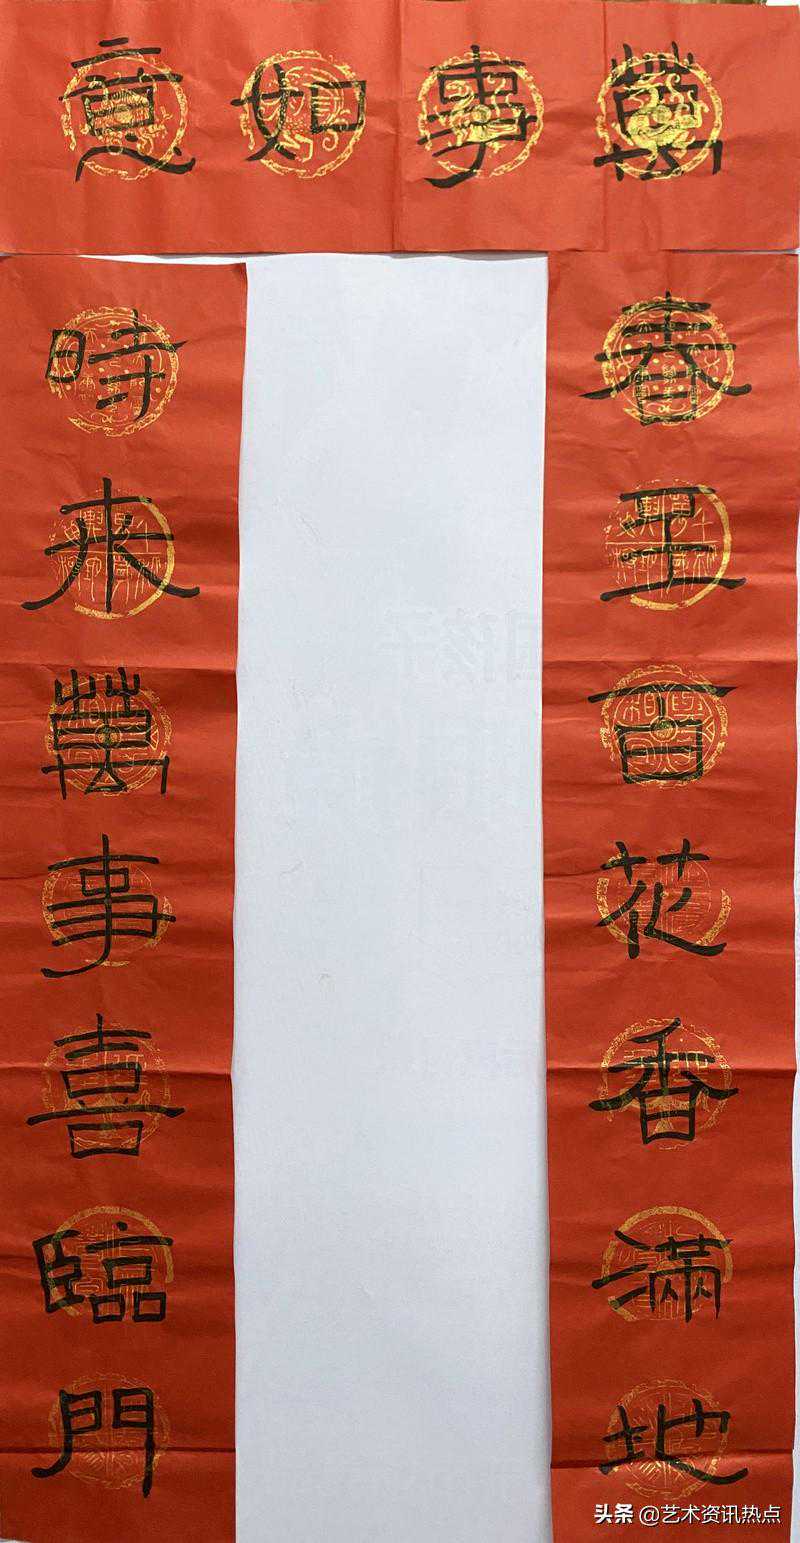 萬事如意
春至百花香滿地
時来萬事喜臨門
头条 @艺术资讯热点